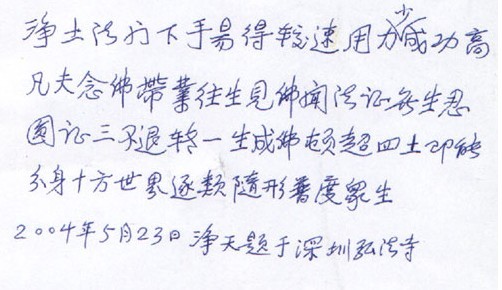 净土法门下手易得较速用力少成功高
凡夫念佛帶業往生見佛闻法证无生忍
圆证三不退转一生成佛顿超四土即能
分身十方世界逐類隨形普度眾生
2004年5月23日 净天题于深圳弘法寺